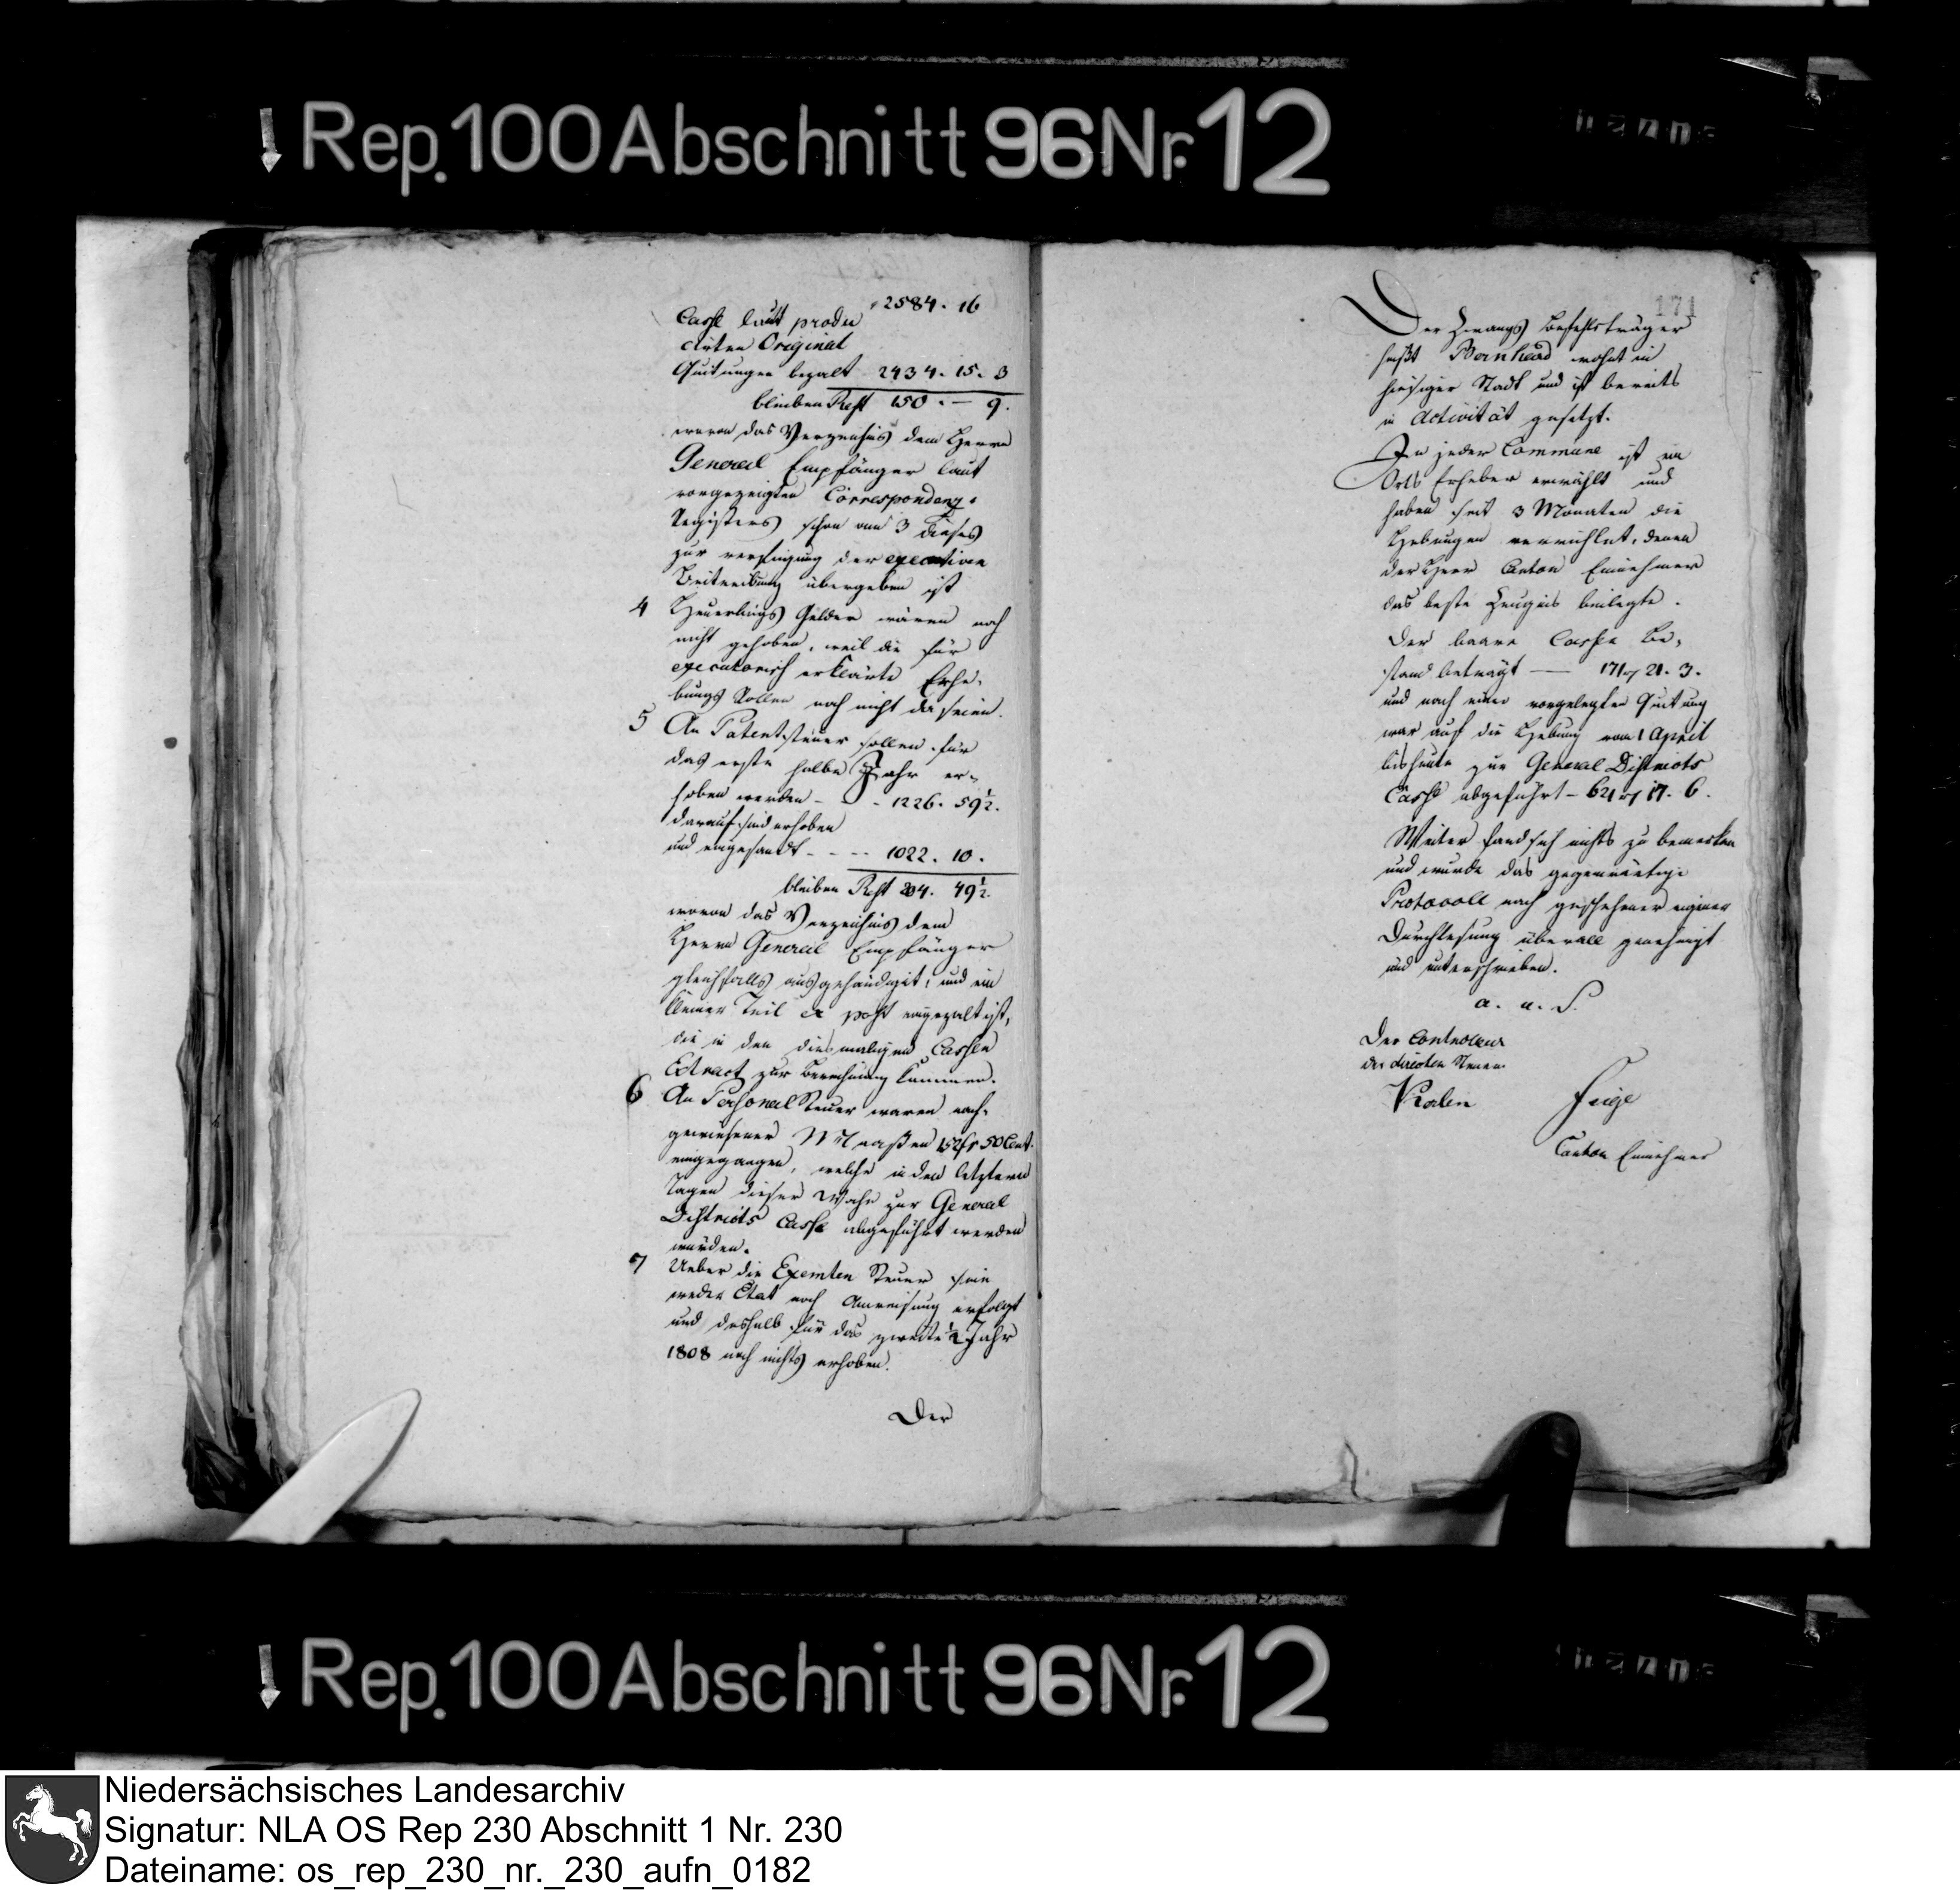 Rep. 100 Abschnitt 96 Nr. 12
2584. 16
Casse laut produ
cirten Original
Quitungen bezalt 2434. 15. 3
bleiben Rest 150. — 9.
wovon das Verzeichnis dem Herrn
General Empfänger laut
vorgezeigten Correspondenz-
Registers schon am 3 dieses
zur verfügung der execution
Beitreibung übergeben ist
4 Heuerlings Gelder wären noch
nicht gehoben, weil die für
executorisch erklärte Erhe-
bungs Rollen noch nicht da seien.
5 An Patentsteuer sollen für
das erste halbe Jahr er-
hoben werden - - 1226. 59½.
darauf sind erhoben
und eingesandt - - - - 1022. 10.
bleiben Rest 204. 49½.
wovon das Verzeichnis dem
Herrn General Empfänger
gleichfalls ausgehändigt, und ein
kleiner Teil ex post eingezalt ist,
die in den diesmaligen Cassen
Extract zur Berechnung kommen.
6 An Personal Steuer waren nach-
gewiesener Maaßen 152 fr 50 Cent.
eingegangen, welche in den letztern
Tagen dieser Woche zur General
Districts Casse abgeführt werden
würden.
7 Ueber die Exemten Steuer sein
weder Etat noch Anweisung erfolgt
und deshalb für das zweite ½ Jahr
1808 noch nichts erhoben.
Der
171
Der Zwangs Befehlsträger
heißt Bernhard wohnt in
hiesiger Stadt und ist bereits
in Activität gesetzt.
In jeder Commune ist ein
Orts Erheber erwählt und
haben seit 3 Monaten die
Hebungen verrichtet, denen
der Herr Canton Einnehmer
das beste Zeugnis beilegte.
Der baare Cassen Be-
stand beträgt — 171 21. 3.
und nach einer vorgelegten Quitung
war auf die Hebung vom 1 April
bis heute zur General Districts
Casse abgeführt — 621 17. 6.
Weiter fand sich nichts zu bemerken
und wurde das gegenwärtige
Protocoll nach geschehener eigener
Durchlesung überall genehmigt
und unterschrieben.
a. u. S.
Der Controleur
der directen Steuern
Canton Einnehmer
Rep. 100 Abschnitt 96 Nr. 12
Niedersächsisches Landesarchiv
Signatur: NLA OS Rep 230 Abschnitt 1 Nr. 230
Dateiname: os_rep_230_nr._230_aufn_0182